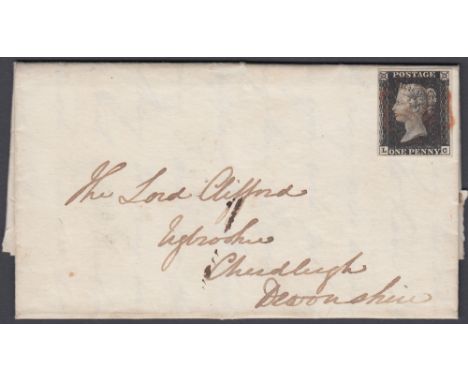 POSTAGE
L G
ONE PENNY
The Lord Clifford
Ugbrooke
Chudleigh
Devonshire